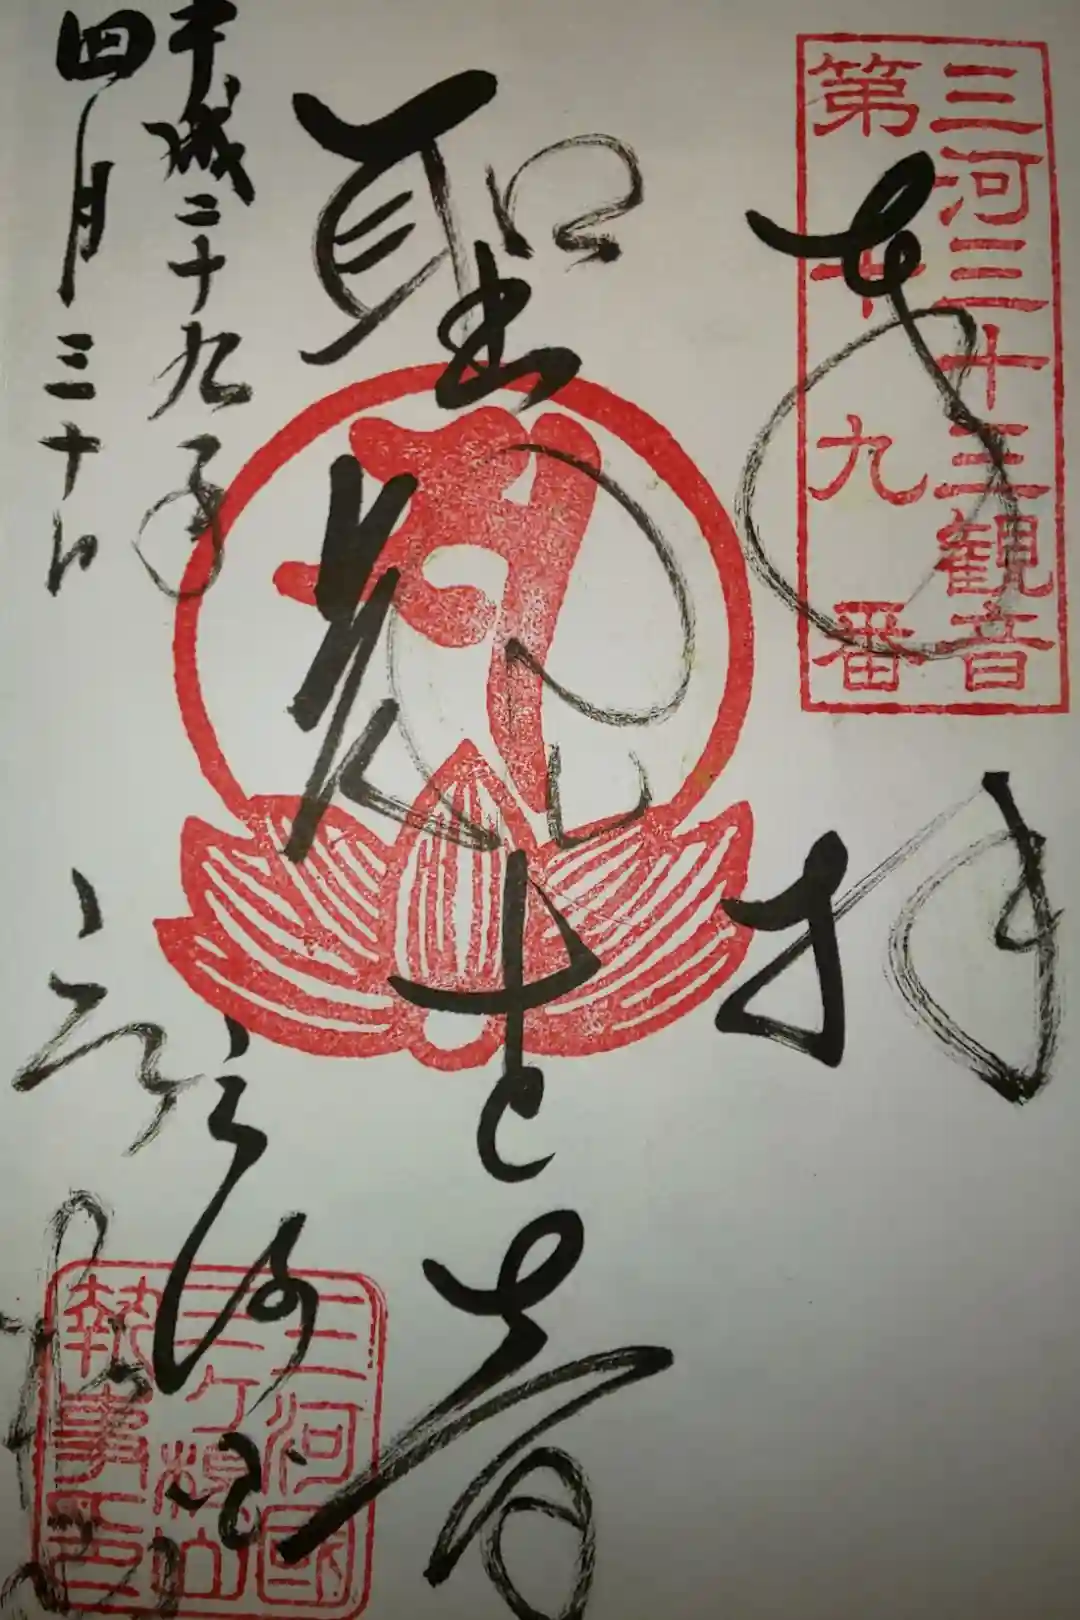 三河三十三観音
第十九番
奉拝
聖観世音
平成二十九年
四月三十日
三河國
三ヶ根山
執事印